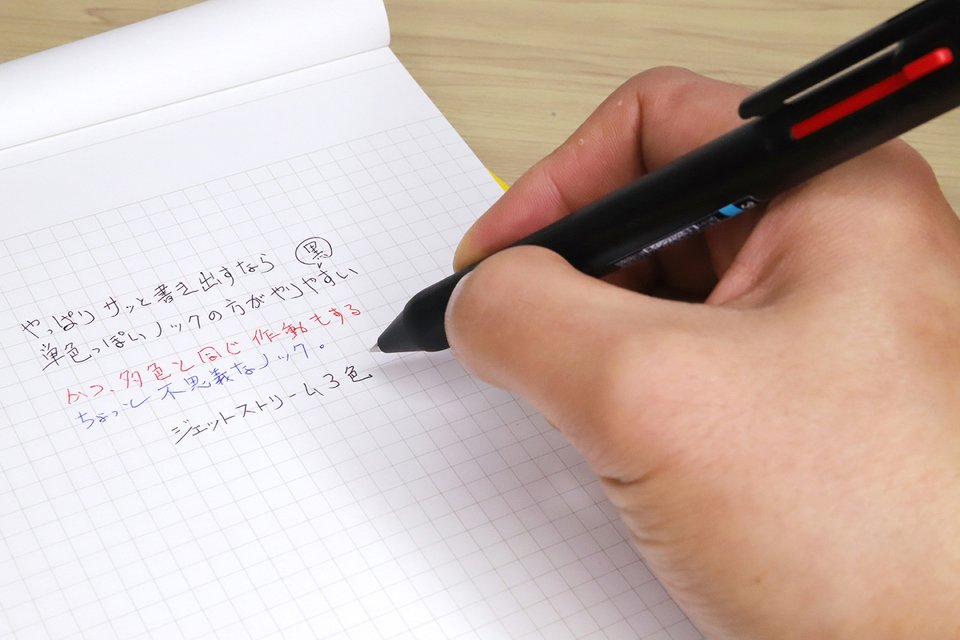 やっぱりサッと書き出すなら 黒
単色っぽいノックの方がやりやすい
かつ、多色と同じ作動もする
ちょっと不思議なノック。
ジェットストリーム3色